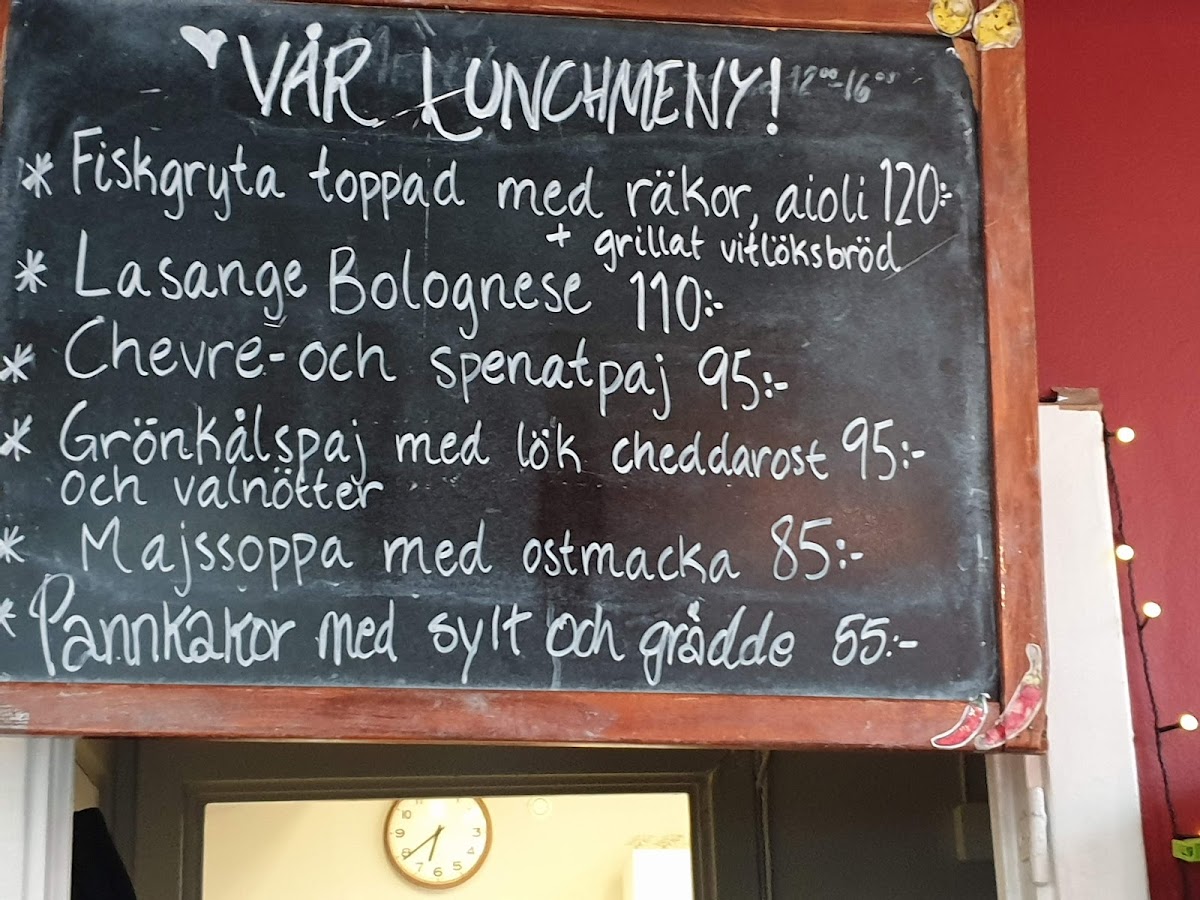 VÅR LUNCHMENY! 12⁰⁰-16⁰⁰
* Fiskgryta toppad med räkor, aioli 120:-
+ grillat vitlöksbröd
* Lasange Bolognese 110:-
* Chevré- och spenatpaj 95:-
* Grönkålspaj med lök cheddarost 95:-
och valnötter
* Majssoppa med ostmacka 85:-
* Pannkakor med sylt och grädde 55:-
10
9
8
7
6
5
4
3
2